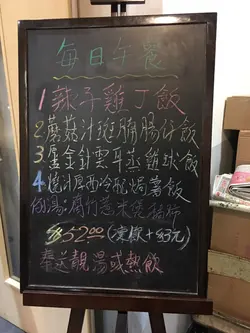 每日午餐
1辣子雞丁飯
2蘑菇汁斑腩腸仔飯
3金針雲耳蒸雞球飯
4燒汁西冷配焗薯飯
例湯:腐竹薏米煲
$52.00 (凍飲+$3元)
奉送靚湯或熱飲